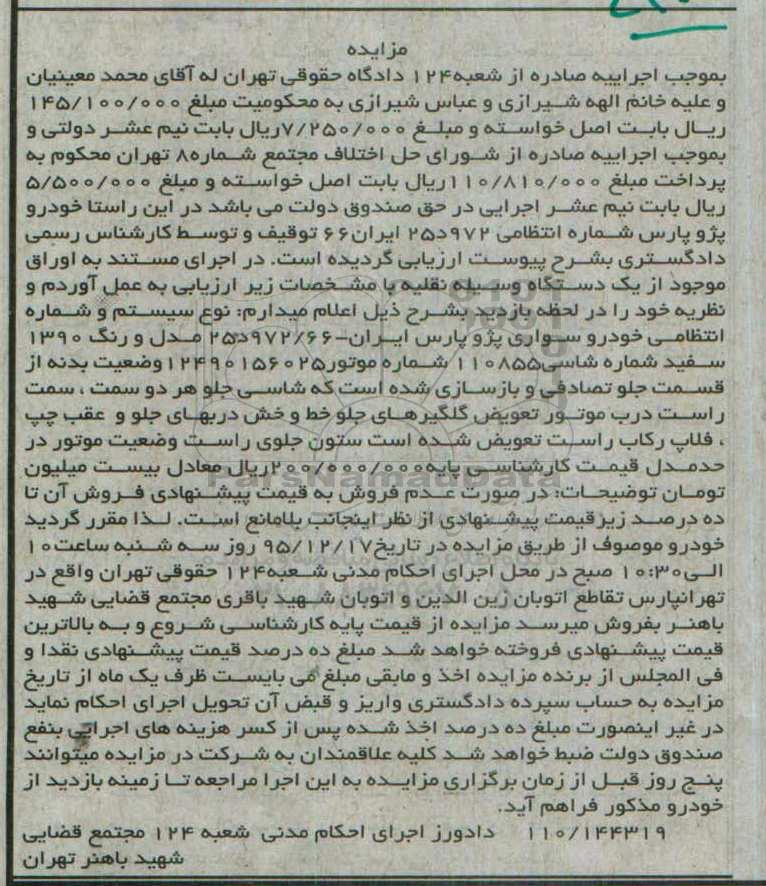 مزایده
بموجب اجراییه صادره از شعبه۱۲۴ دادگاه حقوقی تهران له آقای محمد معینیان
و علیه خانم الهه شیرازی و عباس شیرازی به محکومیت مبلغ ۱۴۵/۱۰۰/۰۰۰
ریال بابت اصل خواسته و مبلغ ۷/۲۵۰/۰۰۰ریال بابت نیم عشر دولتی و
بموجب اجراییه صادره از شورای حل اختلاف مجتمع شماره۸ تهران محکوم به
پرداخت مبلغ ۱۱۰/۸۱۰/۰۰۰ریال بابت اصل خواسته و مبلغ ۵/۵۰۰/۰۰۰
ریال بابت نیم عشر اجرایی در حق صندوق دولت می باشد در این راستا خودرو
پژو پارس شماره انتظامی ۹۷۲د۲۵ ایران۶۶ توقیف و توسط کارشناس رسمی
دادگستری بشرح پیوست ارزیابی گردیده است. در اجرای مستند به اوراق
موجود از یک دستگاه وسیله نقلیه با مشخصات زیر ارزیابی به عمل آوردم و
نظریه خود را در لحظه بازدید بشرح ذیل اعلام میدارم: نوع سیستم و شماره
انتظامی خودرو سواری پژو پارس ایران-۹۷۲/۶۶د۲۵ مدل و رنگ ۱۳۹۰
سفید شماره شاسی۱۱۰۸۵۵ شماره موتور۱۲۴۹۰۱۵۶۰۲۵وضعیت بدنه از
قسمت جلو تصادفی و بازسازی شده است که شاسی جلو هر دو سمت ، سمت
راست درب موتور تعویض گلگیرهای جلو خط و خش دربهای جلو و عقب چپ
، فلاپ رکاب راست تعویض شده است ستون جلوی راست وضعیت موتور در
حدمدل قیمت کارشناسی پایه۲۰۰/۰۰۰/۰۰۰ریال معادل بیست میلیون
تومان توضیحات: در صورت عدم فروش به قیمت پیشنهادی فروش آن تا
ده درصد زیرقیمت پیشنهادی از نظر اینجانب بلامانع است. لذا مقرر گردید
خودرو موصوف از طریق مزایده در تاریخ۹۵/۱۲/۱۷ روز سه شنبه ساعت۱۰
الی۱۰:۳۰ صبح در محل اجرای احکام مدنی شعبه۱۲۴ حقوقی تهران واقع در
تهرانپارس تقاطع اتوبان زین الدین و اتوبان شهید باقری مجتمع قضایی شهید
باهنر بفروش میرسد مزایده از قیمت پایه کارشناسی شروع و به بالاترین
قیمت پیشنهادی فروخته خواهد شد مبلغ ده درصد قیمت پیشنهادی نقدا و
فی المجلس از برنده مزایده اخذ و مابقی مبلغ می بایست ظرف یک ماه از تاریخ
مزایده به حساب سپرده دادگستری واریز و قبض آن تحویل اجرای احکام نماید
در غیر اینصورت مبلغ ده درصد اخذ شده پس از کسر هزینه های اجرایی بنفع
صندوق دولت ضبط خواهد شد کلیه علاقمندان به شرکت در مزایده میتوانند
پنج روز قبل از زمان برگزاری مزایده به این اجرا مراجعه تا زمینه بازدید از
خودرو مذکور فراهم آید.
۱۱۰/۱۴۴۳۱۹ دادورز اجرای احکام مدنی شعبه ۱۲۴ مجتمع قضایی
شهید باهنر تهران
ParsNamadData